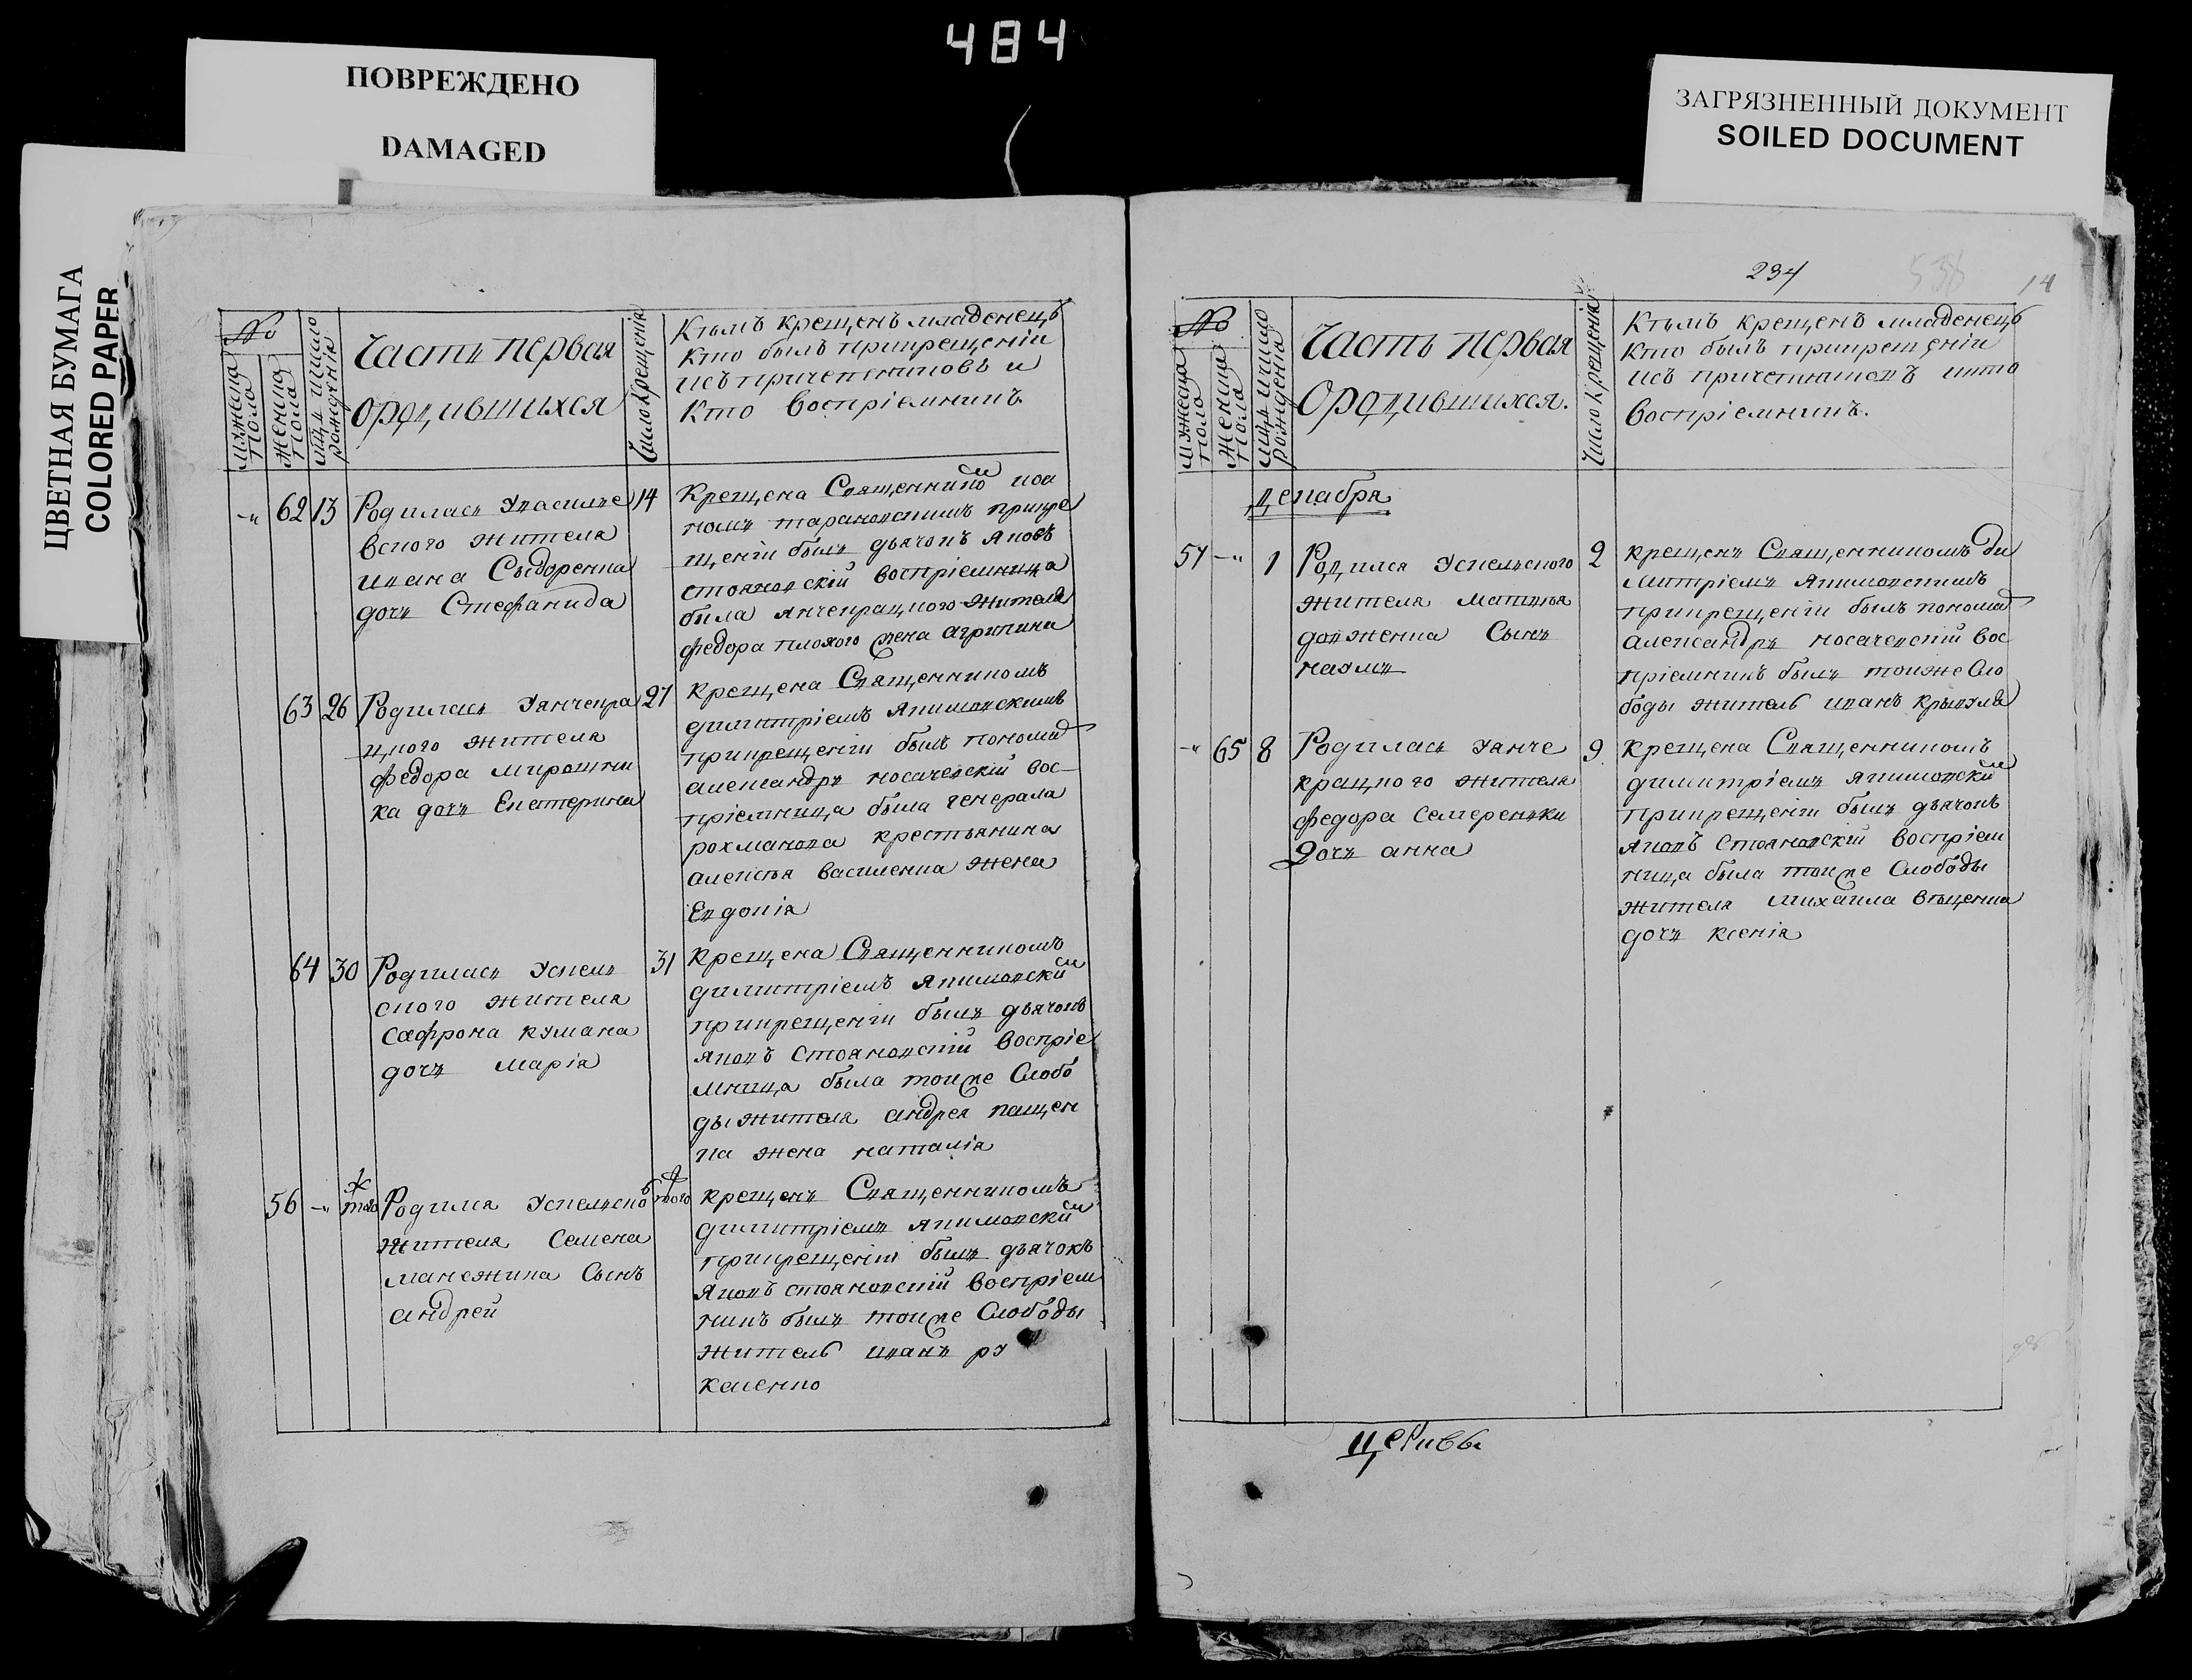 484
ПОВРЕЖДЕНО
DAMAGED
ЗАГРЯЗНЕННЫЙ ДОКУМЕНТ
SOILED DOCUMENT
ЦВЕТНАЯ БУМАГА
COLORED PAPER
№
мужеска пола
женска пола
мц и число рожденія
Часть первая
О родившихся
Число крещенія
Кемъ крещенъ младенецъ
кто былъ прикрещеніи
изъ причетниковъ и
кто воспріемникъ
62 13 Родилась
вского жителя
ивана Сидоренка
дочь Стефанида
14 Крещена Священником иоа
номъ тарановскимъ прикре
щеніи былъ дьячокъ яковъ
стояновскій воспріемница
была янчекрацкого жителя
федора плохого жена агрипина
63 26 Родилась Уянчекра
цкого жителя
федора мирошни
ка дочь Екатерина
27 крещена Священникомъ
димитріемъ якимовскимъ
прикрещеніи былъ пономар
александръ носачевскій вос
пріемница была генерала
рохманова крестьянина
алексея василенка жена
Евдокія
64 30 Родилась Успен
ского жителя
Сафрона кумана
дочь марія
31 крещена Священникомъ
димитріемъ якимовским
прикрещеніи былъ дьячокъ
яковъ стояновскій воспріе
мница была тоиже Слобо
ды жителя андрея пащен
ка жена наталія
56 того Родился
жителя Семена
манежина Сынъ
андрей
того крещенъ Священникомъ
димитріемъ якимовским
прикрещеніи былъ дьячокъ
яковъ стояновскій воспріем
никъ былъ тоиже Слободы
житель иванъ ру
каленко
234
14
№
мужеска пола
женска пола
мц и число рожденія
Часть первая
О родившихся.
Число крещенія
Кемъ крещенъ младенецъ
кто былъ прикрещеніи
изъ причетниковъ икто
воспріемникъ.
декабря
57 1 Родился
жителя матвея
довженка Сынъ
наумъ
2 крещенъ Священникомъ ди
митріемъ якимовскимъ
прикрещеніи былъ пономар
александръ носачевскій вос
пріемникъ былъ тоиже Сло
боды житель иванъ
65 8 Родилась Уянче
крацкого жителя
федора Семеренки
Дочь анна
9 крещена Священникомъ
димитріемъ якимовским
прикрещеніи былъ дьячокъ
яковъ Стояновскій воспріем
ница была тоиже Слободы
жителя михаила
дочь ксенія
церквы